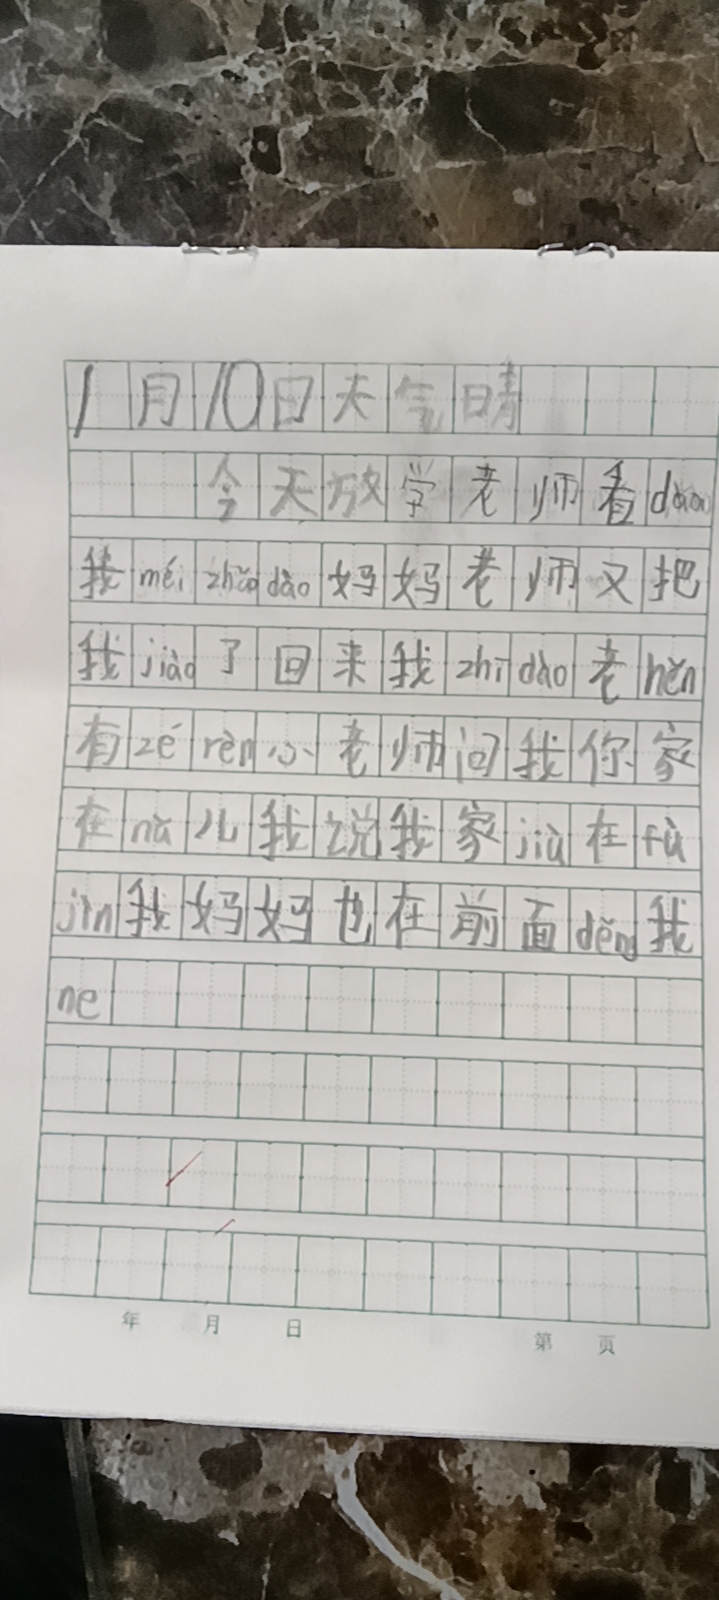 1月10日天气晴
今天放学老师看dào
我méi zhǎo dào妈妈老师又把
我jiào了回来我zhī dào老hěn
有zé rèn心老师问我你家
在nǎ儿我说我家jiù在fù
jìn我妈妈也在前面děng我
ne
年 月 日 第 页